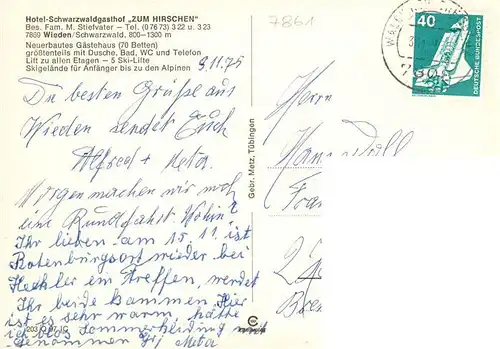 Hotel-Schwarzwaldgasthof „ZUM HIRSCHEN"
Bes. Fam. M. Stiefvater – Tel. (0 76 73) 3 22 u. 3 23
7869 Wieden/Schwarzwald, 800–1300 m
Neuerbautes Gästehaus (70 Betten)
größtenteils mit Dusche, Bad, WC und Telefon
Lift zu allen Etagen – 5 Ski-Lifte
Skigelände für Anfänger bis zu den Alpinen
9.11.75
Die besten Grüße aus
Wieden sendet Euch
Alfred + Meta.
Morgen machen wir noch
eine Rundfahrt Wohin?
Ihr lieben am 15.11. ist
Rotenburgsort wieder bei
ein Treffen, werdet
Ihr beide kommen. Hier
ist es sehr warm, hätte
ich bloß Sommerkleidung mit
genommen Meta
Gebr. Metz, Tübingen
7861
40
DEUTSCHE BUNDESPOST
Herrn